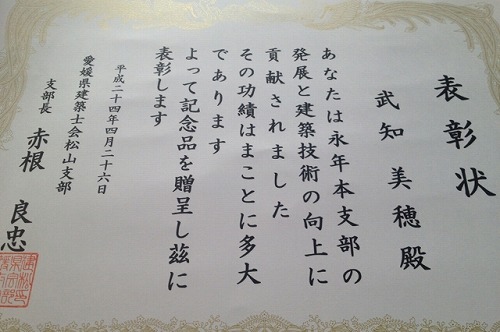 表彰状
武知 美穂 殿
あなたは永年本支部の
発展と建築技術の向上に
貢献されました
その功績はまことに多大
であります
よって記念品を贈呈し茲に
表彰します
平成二十四年四月二十六日
愛媛県建築士会松山支部
支部長 赤根 良忠